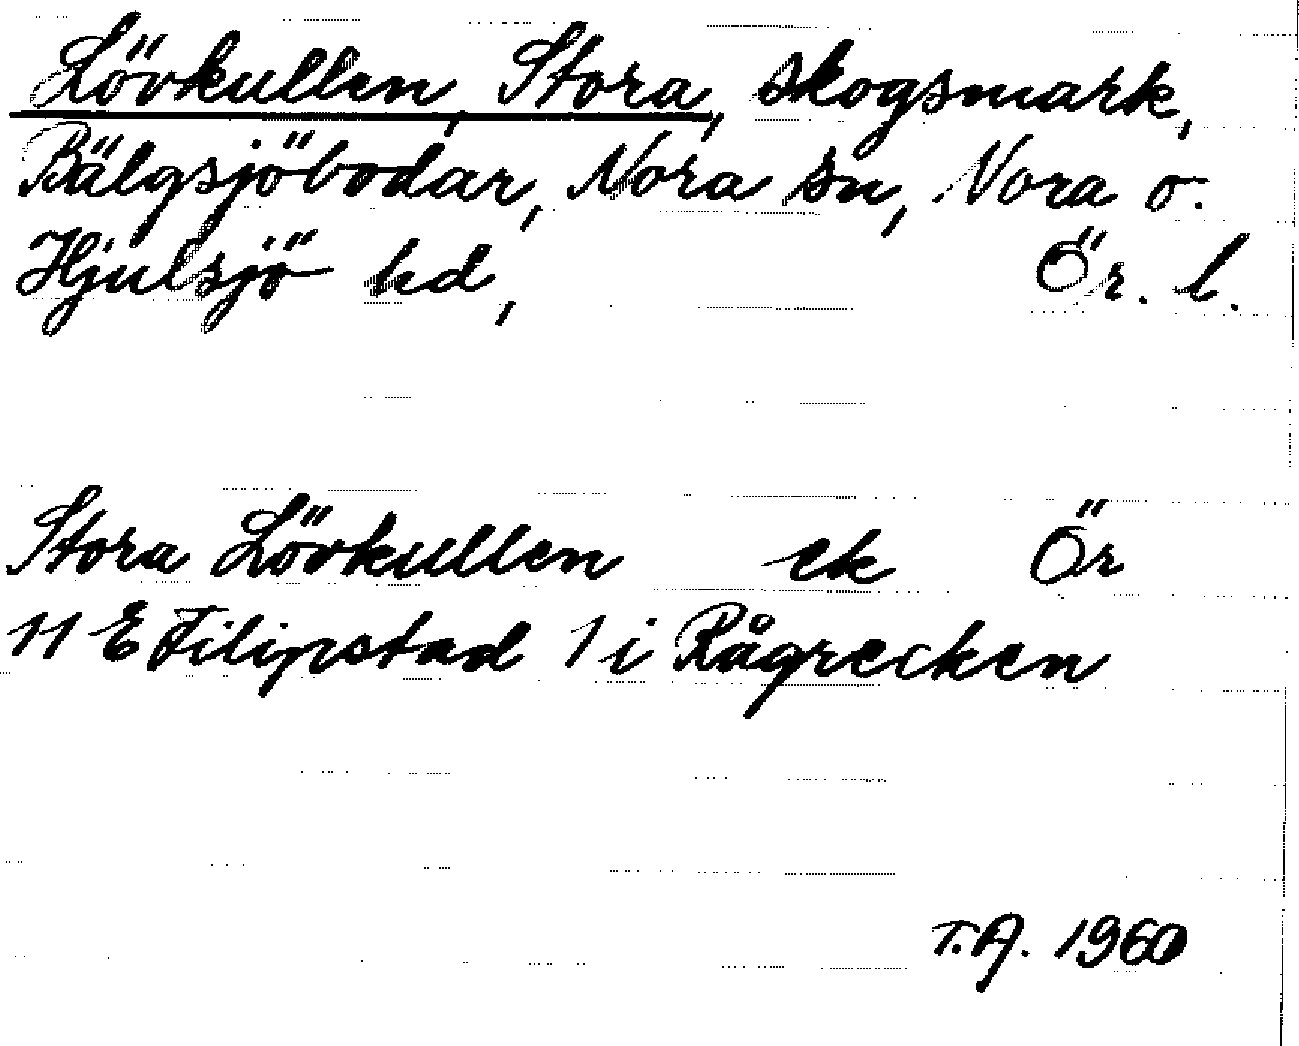 Lövkullen, Stora, skogsmark,
Bälgsjöbodar, Nora sn, Nora o.
Hjulsjö hd, Ör. l.
Stora Lövkullen ek Ör
11 E Filipstad 1 i Rågrecken
T.A. 1960